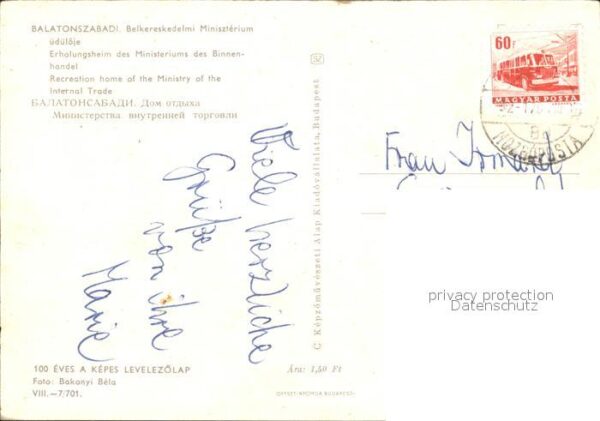 BALATONSZABADI. Belkereskedelmi Minisztérium
üdülője
Erholungsheim des Ministeriums des Binnen-
handel
Recreation home of the Ministry of the
Internal Trade
БАЛАТОНСАБАДИ. Дом отдыха
Министерства внутренней торговли
Viele herzliche
Grüße
von ihre
Marie
100 ÉVES A KÉPES LEVELEZŐLAP
Foto: Bakonyi Béla
VIII.—7/701.
C Képzőművészeti Alap Kiadóvállalata, Budapest
Ára: 1,50 Ft
OFFSET-NYOMDA BUDAPEST
60 f
MAGYAR POSTA
MOZGÓPOSTA
Frau
privacy protection
Datenschutz